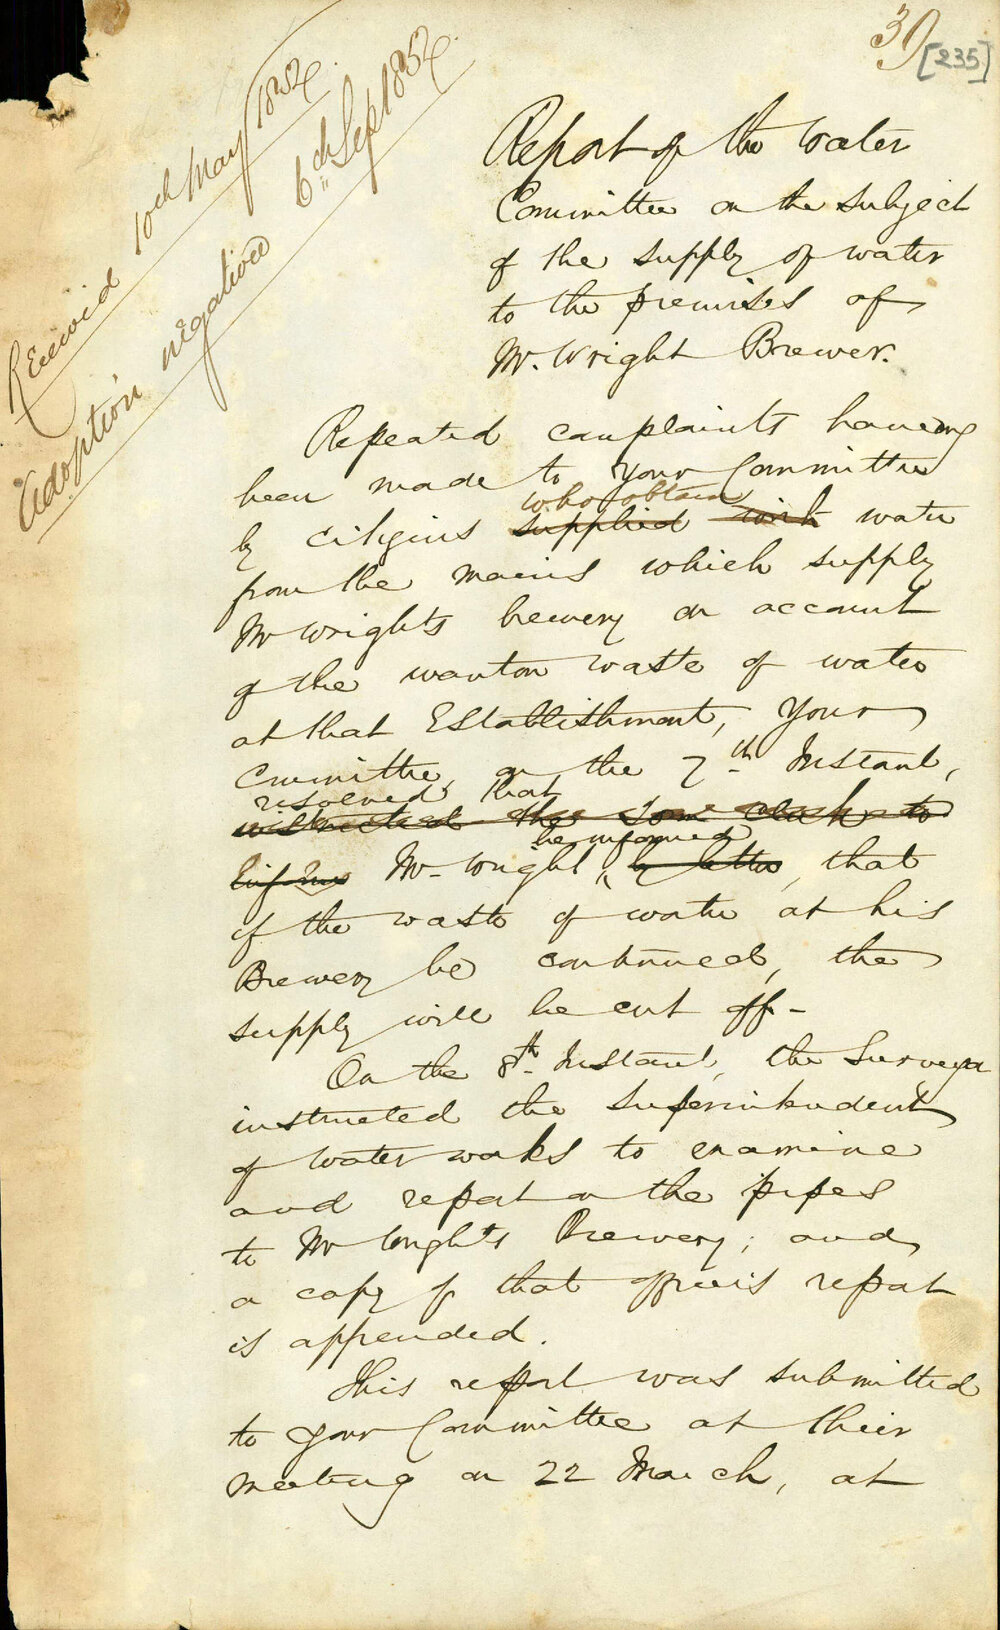 39
[235]
Received 10th May 1852
Adoption negatived 6th Sep 1852
Report of the Water
Committee on the subject
of the supply of water
to the premises of
Mr. Wright Brewer.
Repeated complaints having
been made to your Committee
who obtain
by citizens supplied with water
from the mains which supply
Mr Wrights brewery on account
of the wanton waste of water
at that Establishment, Your
Committee, on the 7th Instant,
resolved that
instructed the Town Clerk to
be informed
inform Mr. Wright, by letter, that
if the waste of water at his
Brewery be continued, the
supply will be cut off-
On the 8th Instant, the Surveyor
instructed the Superintendent
of Water works to examine
and report on the pipes
to Mr Wright's Brewery; and
a copy of that officers report
is appended.
This report was submitted
to your Committee at their
meeting on 22 March, at